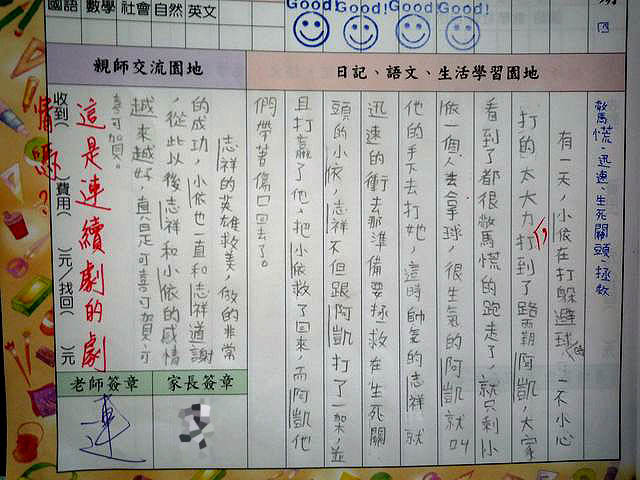 國語 數學 社會 自然 英文
Good! Good! Good! Good!
期四
親師交流園地
日記、語文、生活學習園地
驚慌、迅速、生死關頭、拯救
有一天,小依在打躲避球,一不小心
打的太大力,打到了路霸阿凱,大家
看到了都很驚慌的跑走了,就只剩小
依一個人去拿球,很生氣的阿凱就叫
他的手下去打她,這時帥氣的志祥就
迅速的衝去那準備要拯救在生死關
頭的小依,志祥不但跟阿凱打了一架,並
且打贏了他,把小依救了回來,而阿凱他
們帶著傷口回去了。
志祥的英雄救美,做的非常
的成功,小依也一直和志祥道謝
,從此以後志祥和小依的感情
越來越好,真是可喜可賀可
喜可賀。
這是連續劇的劇
情嗎?
收到( )費用( )元/找回( )元
老師簽章
家長簽章
連